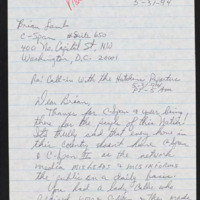 5-31-94
Brian Lamb
C-Span # Suite 650
400 No. Capitol St., NW
Washington, D.C. 20001
Re: Call-in with the Hutchins
Dear Brian,
Thanks for C-Span & your being
there for the people of this Nation!
It's really sad that every home in
this Country doesn't have C-Span
& C-Span II as the network
media MISLEADS & MISINFORMS
the public on a daily basis!
You had a lady caller who